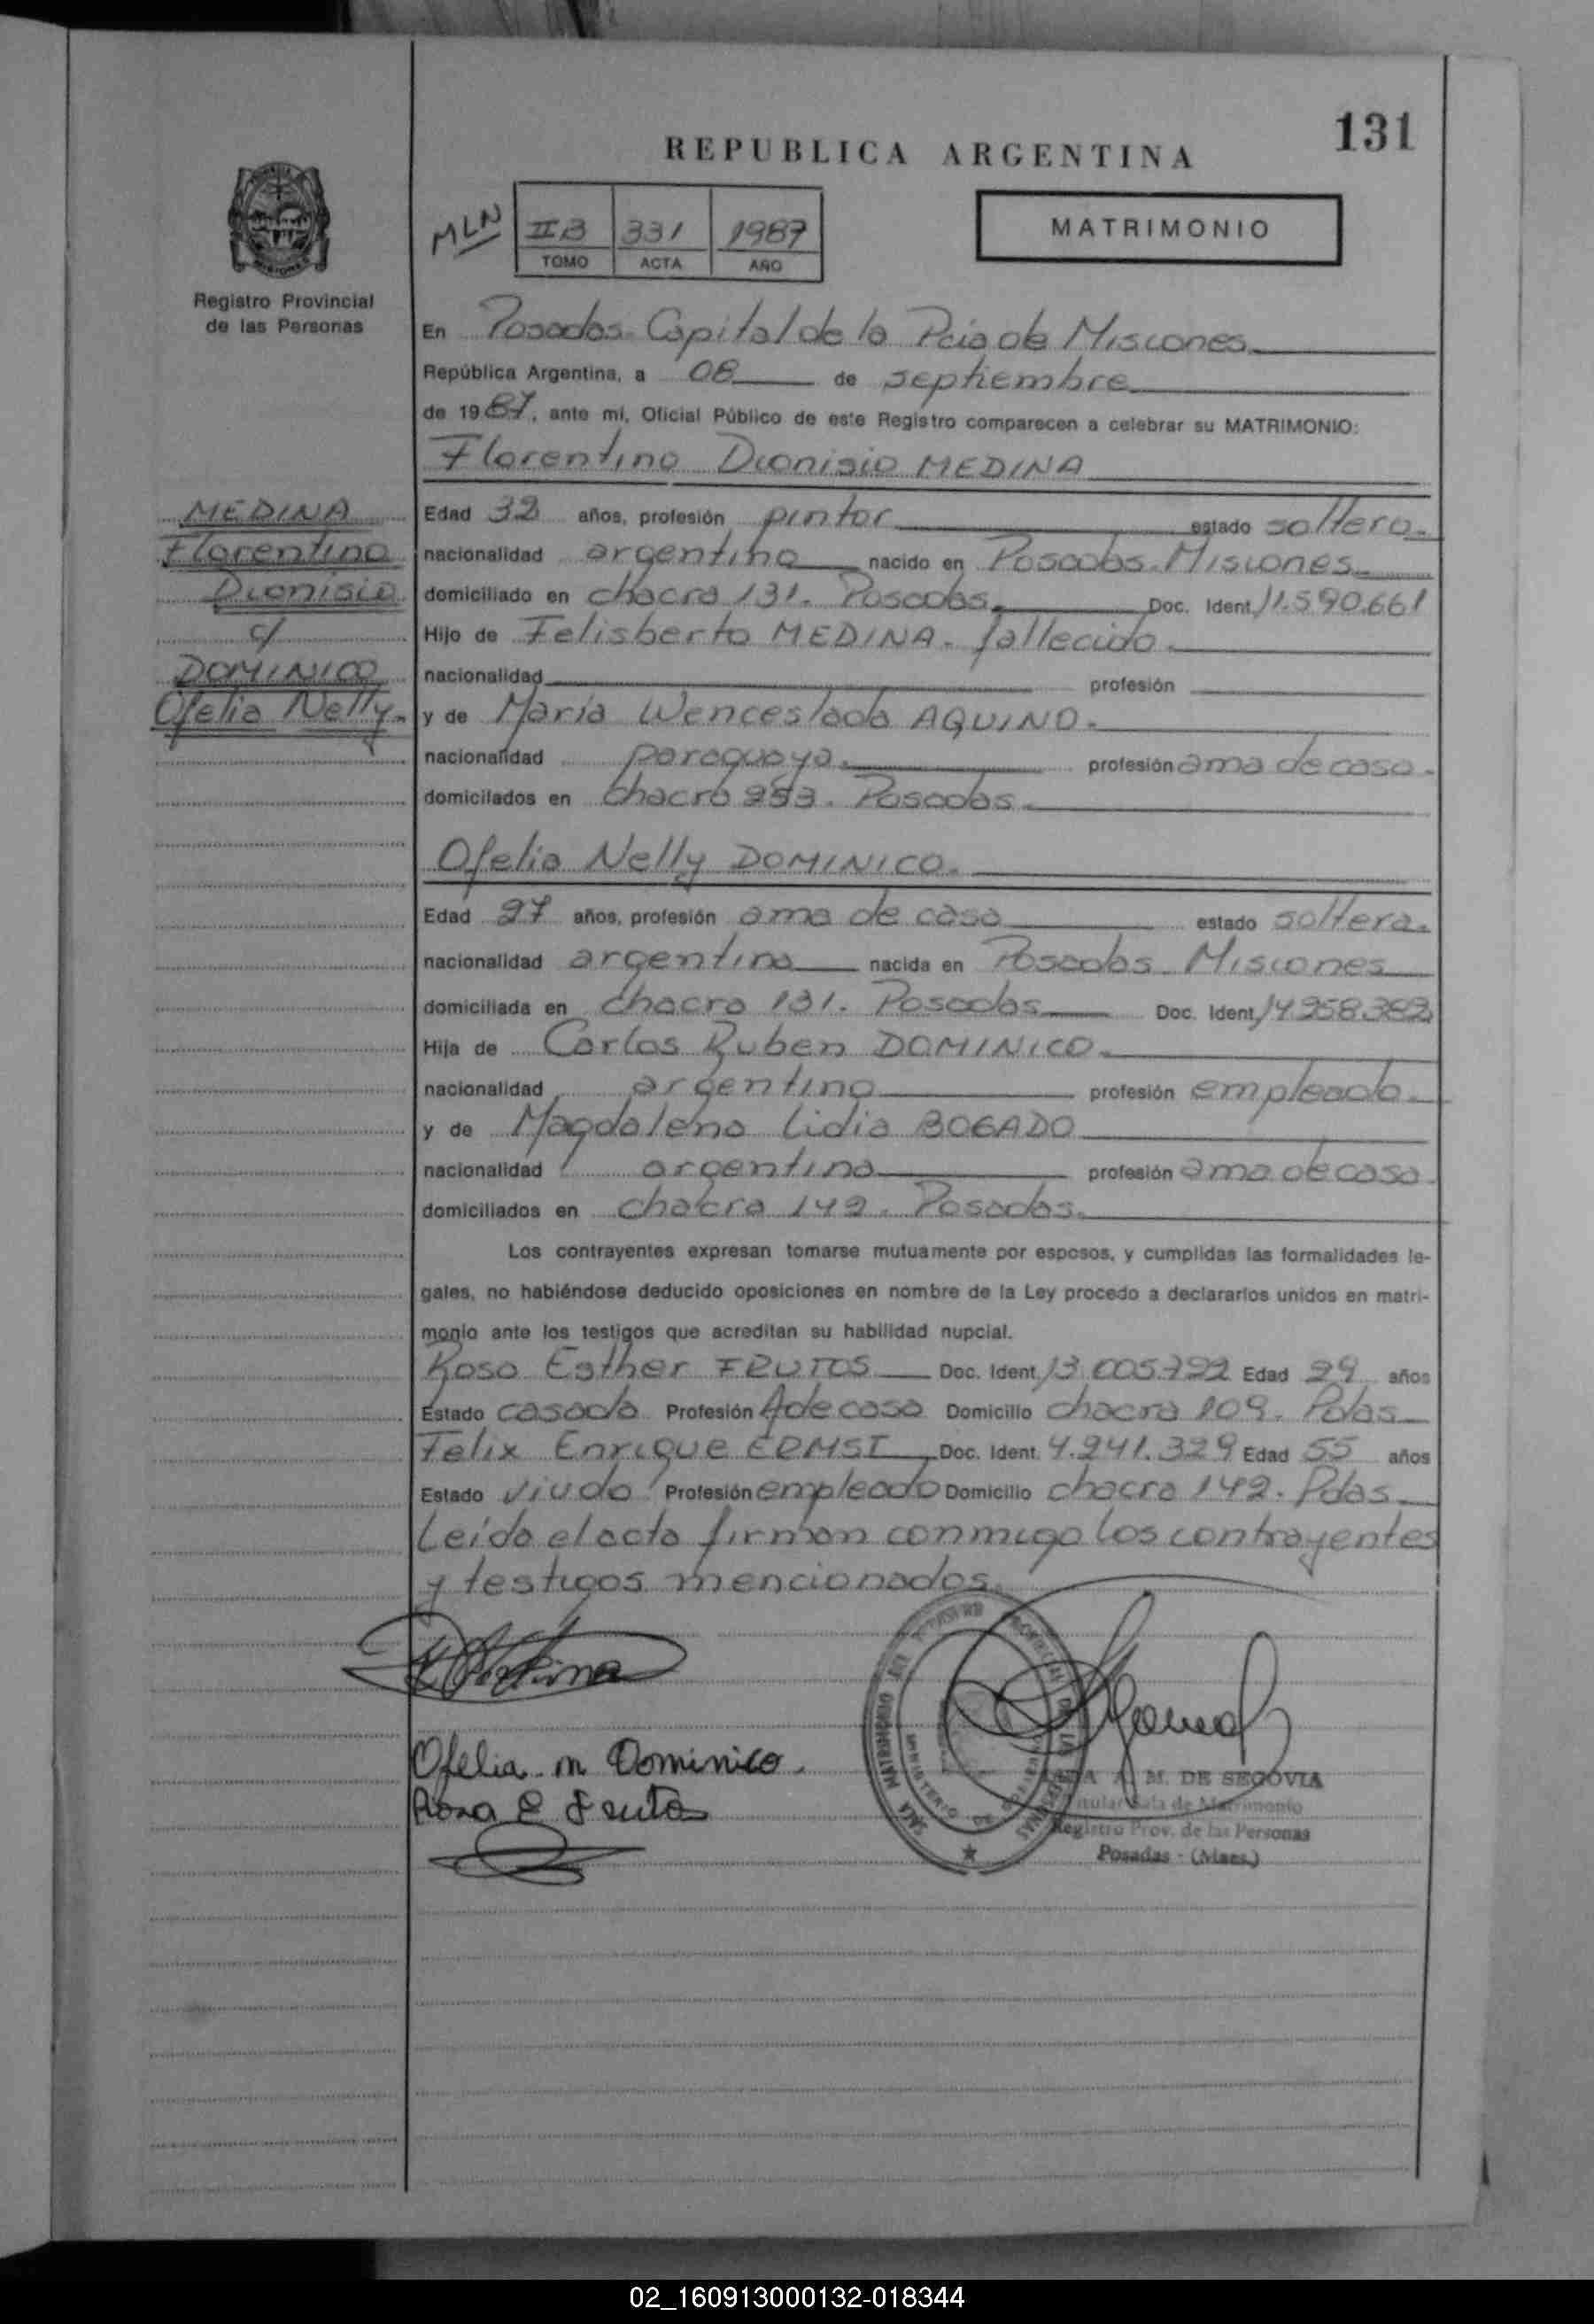 131
REPUBLICA ARGENTINA
MATRIMONIO
MLN
II B 331 1987
TOMO ACTA AÑO
Registro Provincial
de las Personas
En Posadas Capital de la Pcia de Misiones
República Argentina, a 08 de septiembre
de 1987, ante mí, Oficial Público de este Registro comparecen a celebrar su MATRIMONIO:
Florentino Dionisio MEDINA
MEDINA
Florentino
Dionisio
c/
DOMINICO
Ofelia Nelly.
Edad 32 años, profesión pintor estado soltero.
nacionalidad argentina nacido en Posadas. Misiones
domiciliado en chacra 131. Posadas. Doc. Ident. 11.590.661
Hijo de Felisberto MEDINA. fallecido.
nacionalidad profesión
y de María Wenceslada AQUINO.
nacionalidad paraguaya. profesión ama de casa.
domicilados en chacra 253. Posadas.
Ofelia Nelly DOMINICO.
Edad 27 años, profesión ama de casa estado soltera.
nacionalidad argentina nacida en Posadas Misiones
domiciliada en chacra 131. Posadas Doc. Ident. 14.258.382
Hija de Carlos Ruben DOMINICO.
nacionalidad argentino profesión empleado.
y de Magdalena Lidia BOGADO
nacionalidad argentina profesión ama de casa
domiciliados en chacra 149. Posadas.
Los contrayentes expresan tomarse mutuamente por esposos, y cumplidas las formalidades le-
gales, no habiéndose deducido oposiciones en nombre de la Ley procedo a declararlos unidos en matri-
monio ante los testigos que acreditan su habilidad nupcial.
Rosa Esther FRUTOS Doc. Ident. 13.005.792 Edad 29 años
Estado casada Profesión A de casa Domicilio chacra 109. Pdas
Felix Enrique Doc. Ident. 4.241.329 Edad 55 años
Estado viudo Profesión empleado Domicilio chacra 149. Pdas
Leída el acta firman conmigo los contrayentes
y testigos mencionados.
Ofelia n Dominico.
Rosa E Frutos
A. M. DE SEGOVIA
Titular Sala de Matrimonio
Registro Prov. de las Personas
Posadas - (Mnes.)
02_160913000132-018344